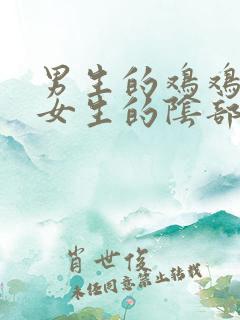 男生的鸡鸡
女生的陰部
肖世俊
未经同意禁止转载